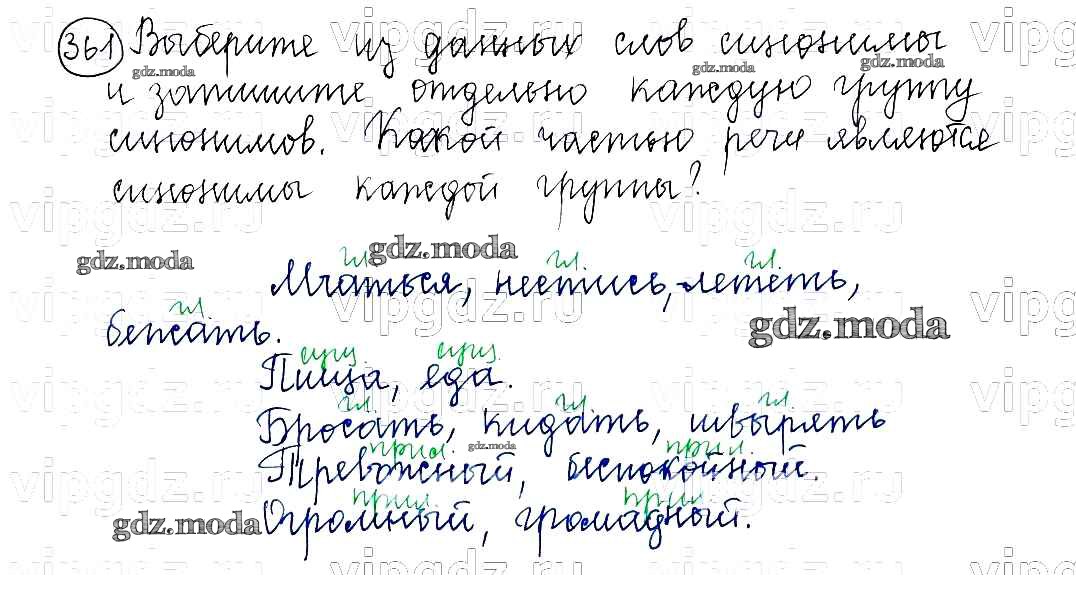 361 Выберите из данных слов синонимы
и запишите отдельно каждую группу
синонимов. Какой частью речи являются
синонимы каждой группы?
гл. гл. гл.
Мчаться, нестись, лететь,
гл.
бежать.
сущ. сущ.
Пища, еда.
гл. гл. гл.
Бросать, кидать, швырять
прил. прил.
Тревожный, беспокойный.
прил. прил.
Огромный, громадный.
gdz.moda
vipgdz.ru